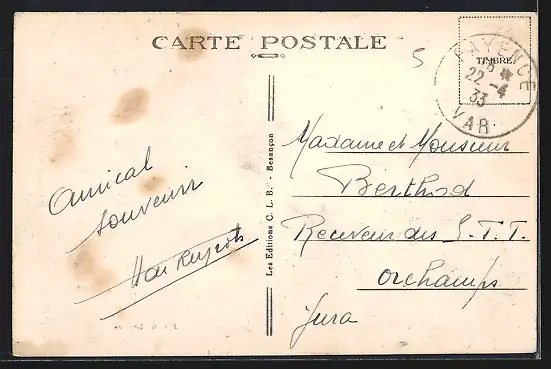 CARTE POSTALE
5
TIMBRE
FAYENCE
22-4
33
VAR
Amical
souvenir
Les Editions C. L. B. - Besançon
Madame et Monsieur
Berthod
Receveur des P. T. T.
Orchamps
Jura